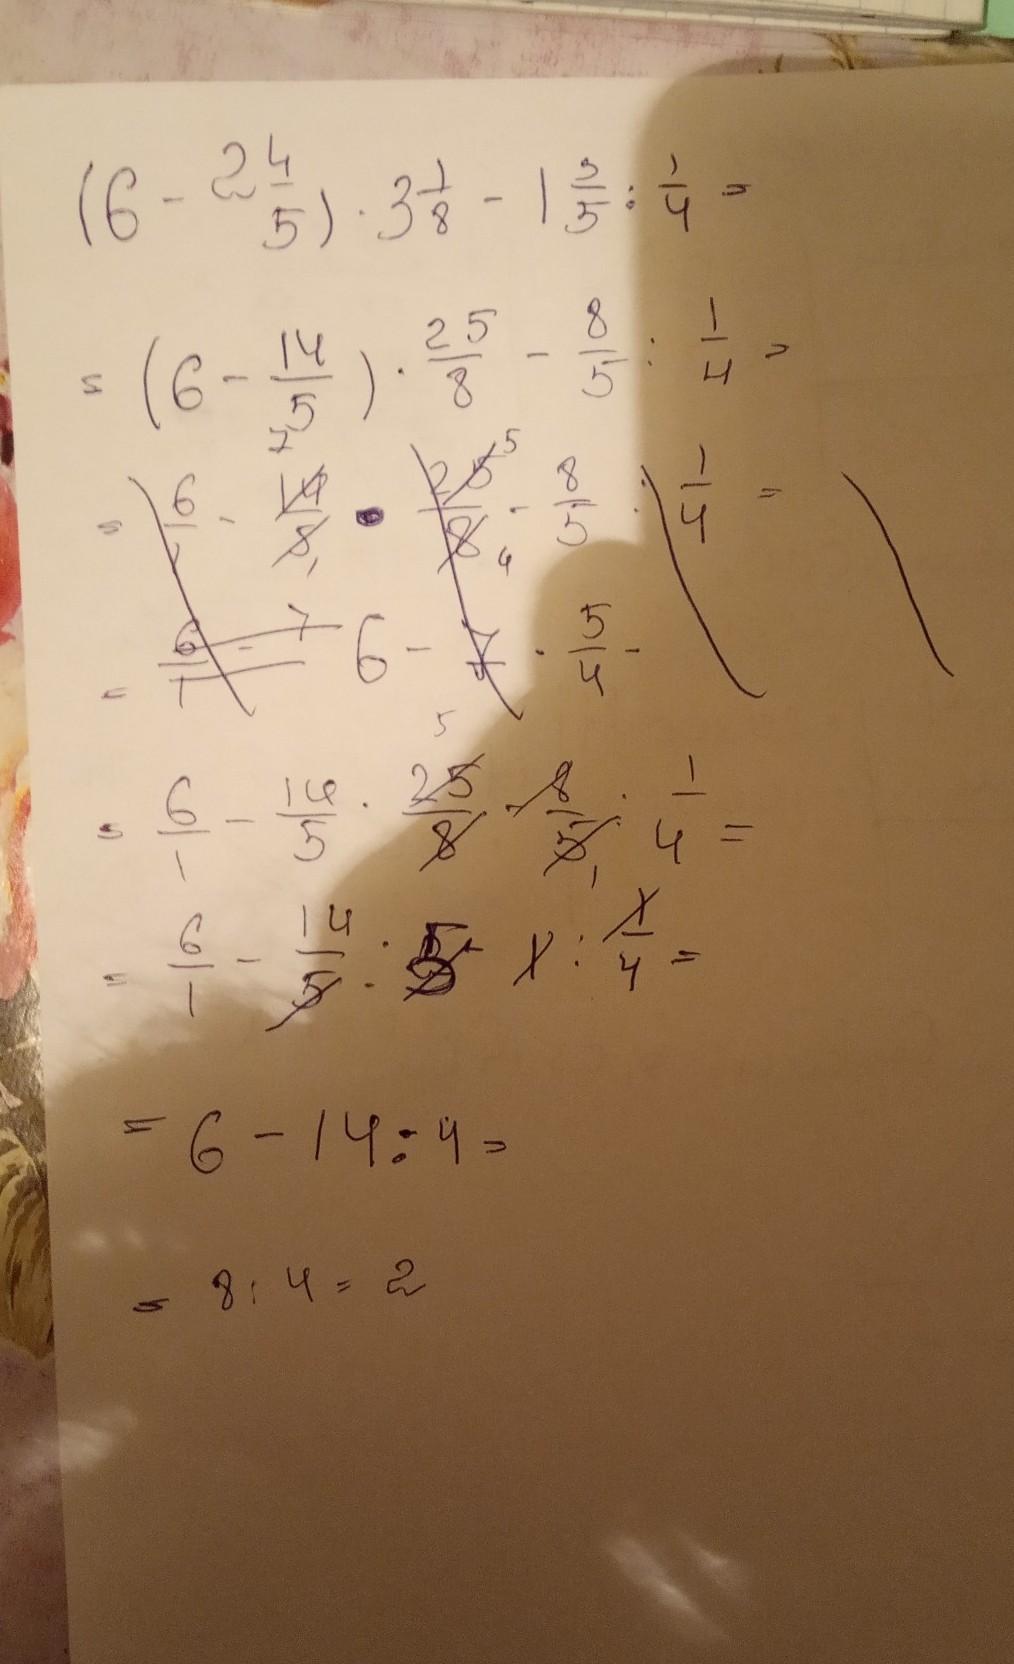 (6 - 2 4/5) · 3 1/8 - 1 3/5 : 1/4 =
= (6 - 14/5) · 25/8 - 8/5 : 1/4 =
= 6/1 - 14/8 · 25/8 - 8/5 : 1/4 =
= 6/1 - 7 6 - 7 · 5/4 -
= 6/1 - 14/5 · 25/8 - 8/5 : 1/4 =
= 6/1 - 14/5 : 5 - 1 : 1/4 =
= 6 - 14 : 4 =
= 8 : 4 = 2